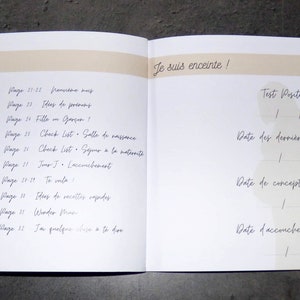 Page 21-22 Neuvième mois
Page 23 Idées de prénoms
Page 24 Fille ou Garçon ?
Page 25 Check List • Salle de naissance
Page 26 Check List • Séjour à la maternité
Page 27 Jour J • L'accouchement
Page 28-29 Te voilà !
Page 30 Idées de recettes rapides
Page 31 Wonder Mum
Page 32 J'ai quelque chose à te dire
Je suis enceinte !
Test Positi
/ /
Date des dernière
/
Date de concept
/
Date d'accouche
/